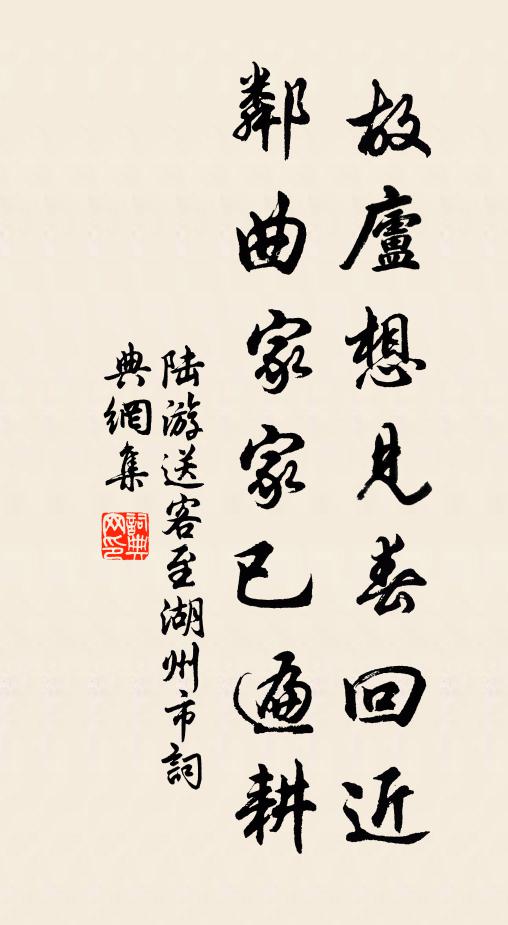 故廬想見春回近
鄰曲家家已遍耕
陆游送客至湖州市詞
典網集
詞典网印